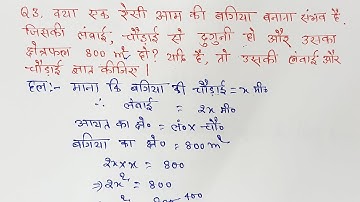 Q3. क्या एक ऐसी आम की बगिया बनाना संभव है
जिसकी लंबाई, चौड़ाई से दुगुनी हो और उसका
क्षेत्रफल 800 m² हो? यदि है, तो उसकी लंबाई और
चौड़ाई ज्ञात कीजिए।
हल:- माना कि बगिया की चौड़ाई = x मी०
∴ लंबाई = 2x मी०
आयत का क्षे० = लं० × चौ०
बगिया का क्षे० = 800 m²
2x × x = 800
⇒ 2x² = 800
400